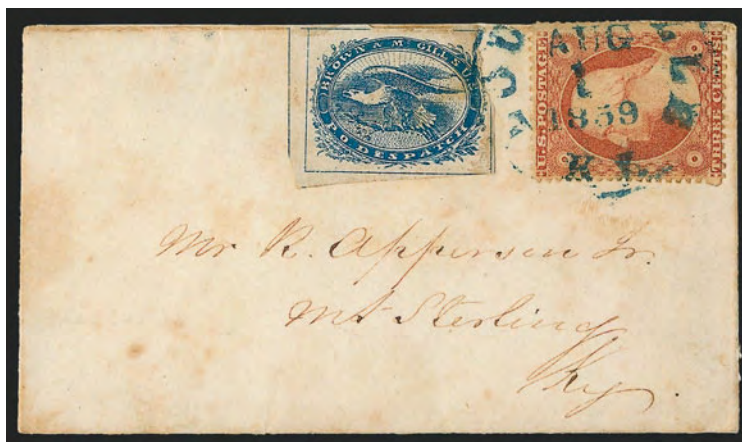 BROWN & McGILL'S U.S.
P.O. DESPATCH
AUG
1
1859
U.S. POSTAGE
THREE CENTS
Mr R. Apperson Jr.
Mt Sterling
Ky.